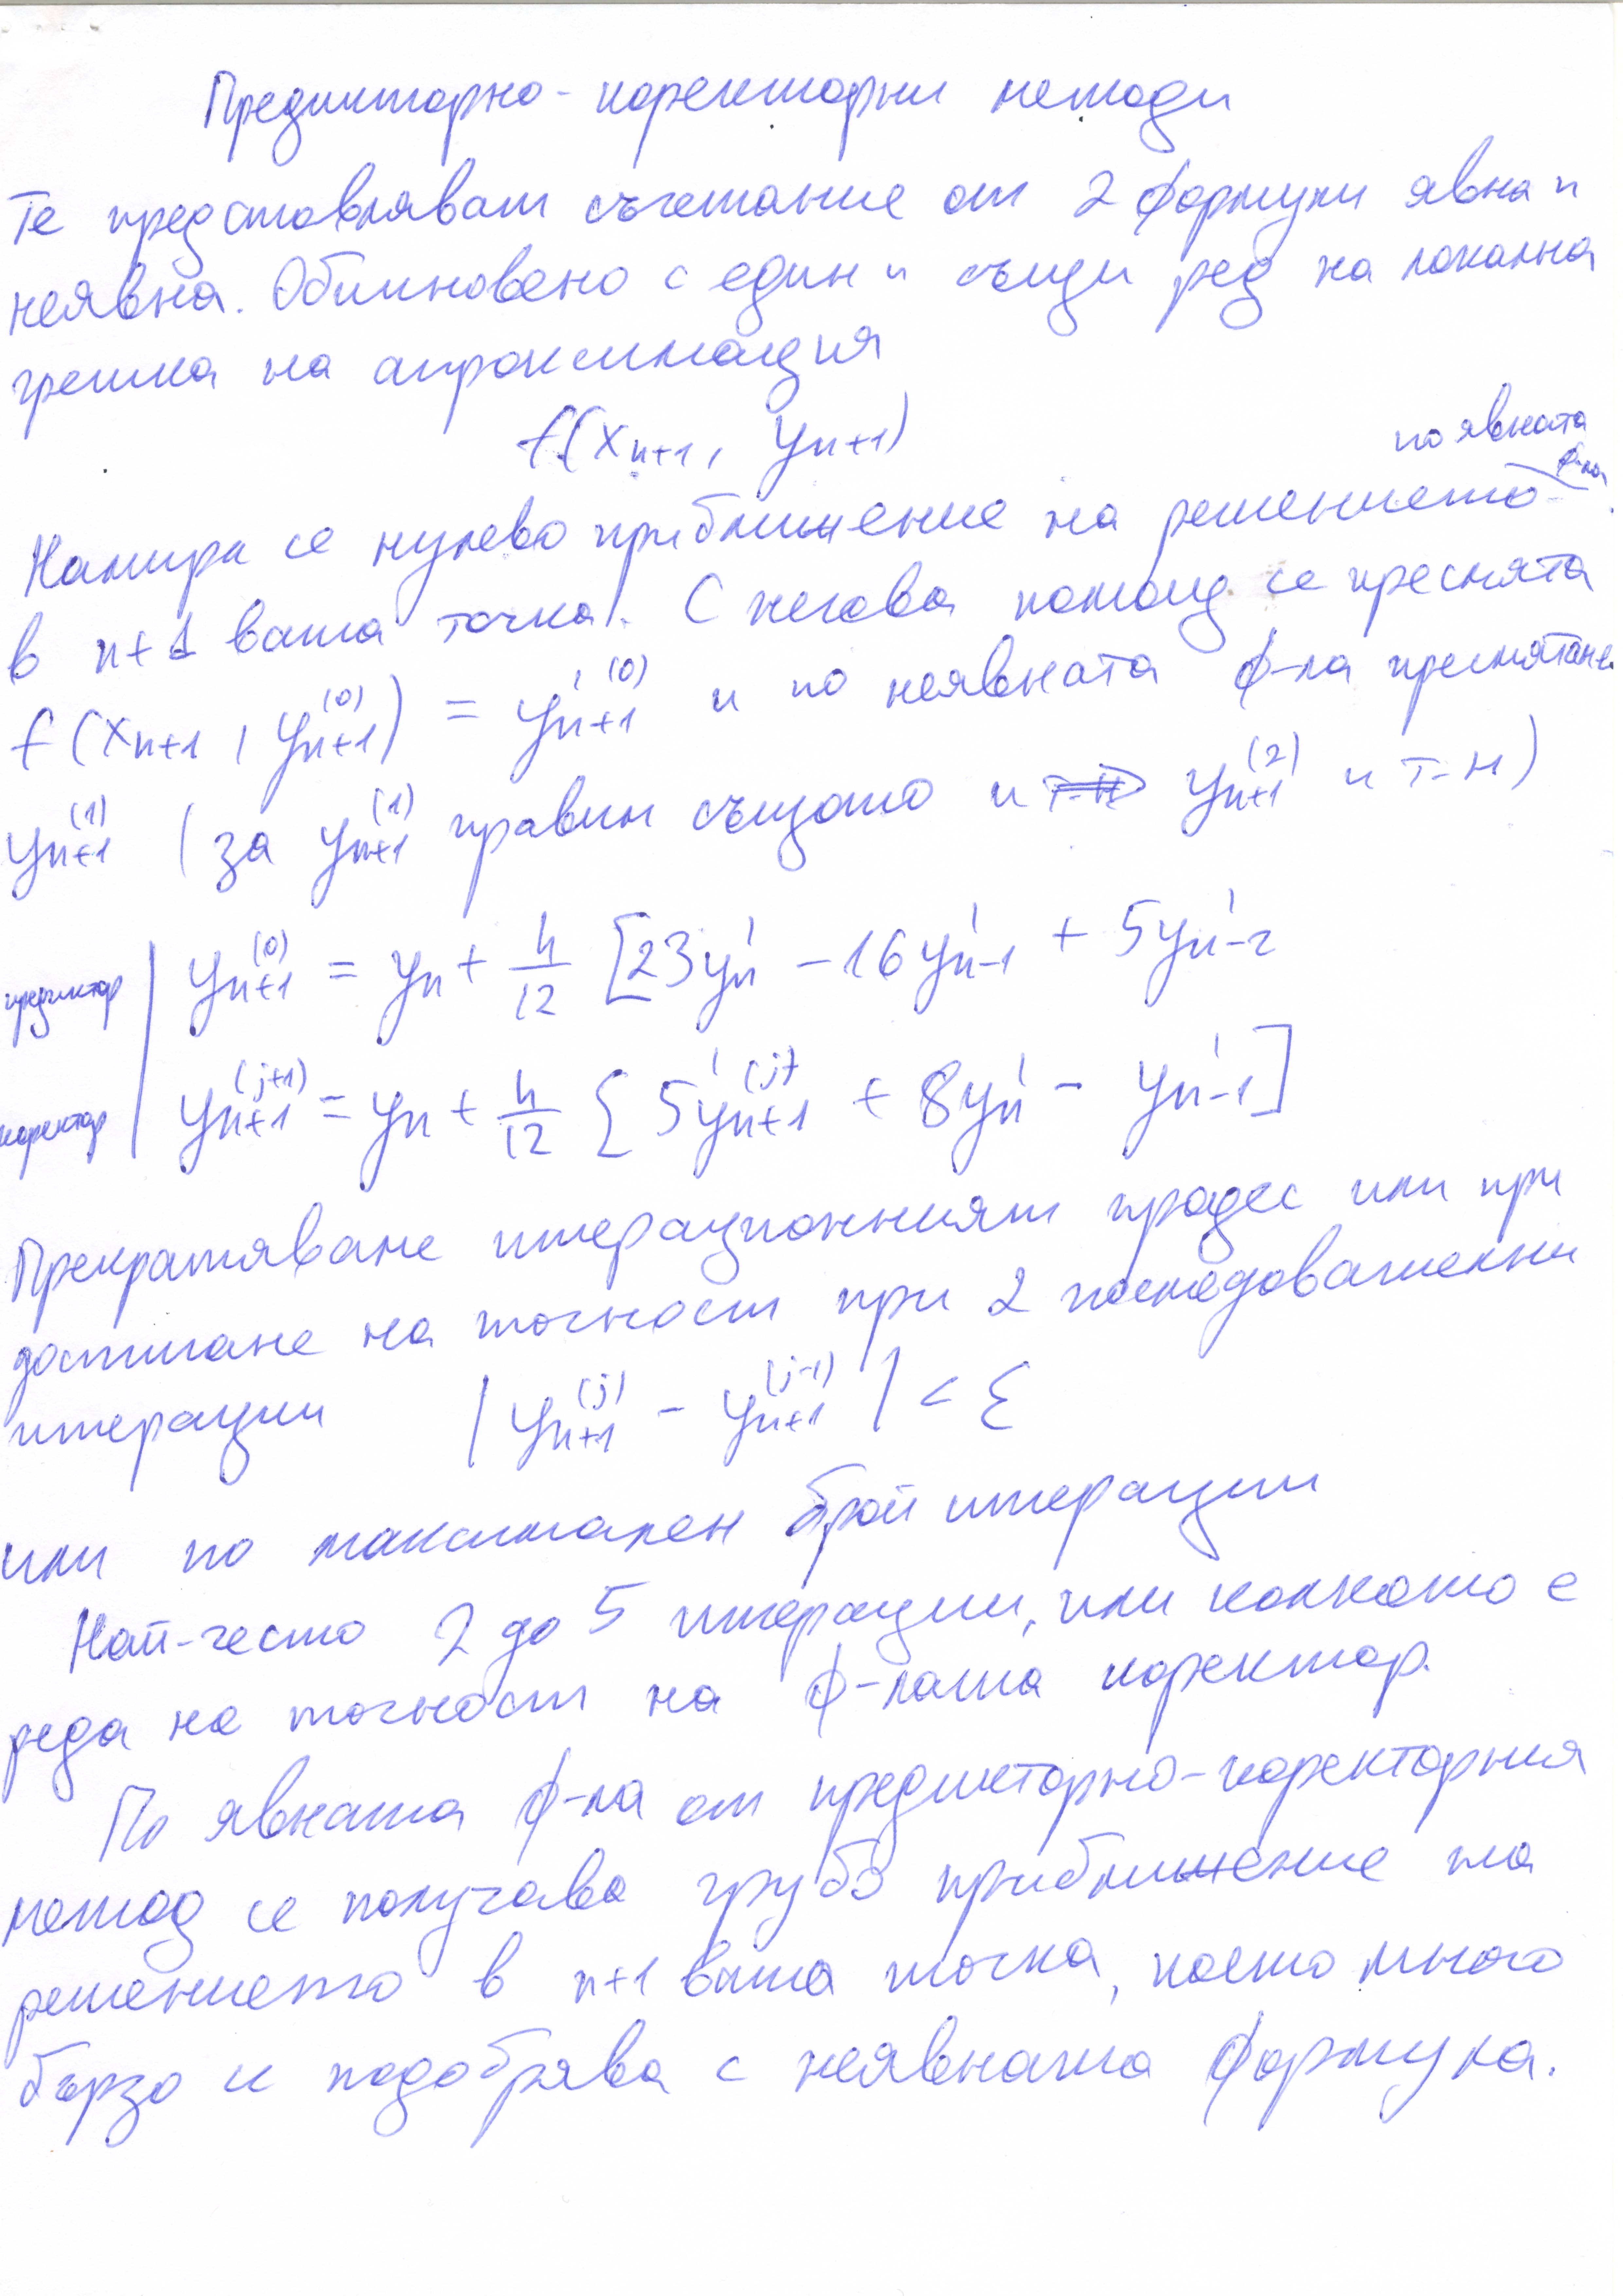 Предикторно-коректорни методи
Те представляват съчетание от 2 формули явна и
неявна. Обикновено с един и същи ред на локална
грешка на апроксимация
f(x_{n+1}, y_{n+1})
по явната
ф-ла
Намира се нулево приближение на решението
в n+1 вата точка. С негова помощ се пресмята
f(x_{n+1}, y_{n+1}^{(0)}) = y'_{n+1}^{(0)} и по неявната ф-ла пресмятане
y_{n+1}^{(1)} (за y_{n+1}^{(1)} правим същото и y_{n+1}^{(2)} и т-н)
предиктор | y_{n+1}^{(0)} = y_n + h/12 [23y'_n - 16y'_{n-1} + 5y'_{n-2}
коректор | y_{n+1}^{(j+1)} = y_n + h/12 [5y'_{n+1}^{(j)} + 8y'_n - y'_{n-1}]
Прекратяване итерационният процес или при
достигане на точност при 2 последователни
итерации |y_{n+1}^{(j)} - y_{n+1}^{(j-1)}| < ε
или по максимален брой итерации
Най-често 2 до 5 итерации, или колкото е
реда на точност на ф-лата коректор.
По явната ф-ла от предикторно-коректорния
метод се получава грубо приближение на
решението в n+1 вата точка, което много
бързо се подобрява с неявната формула.